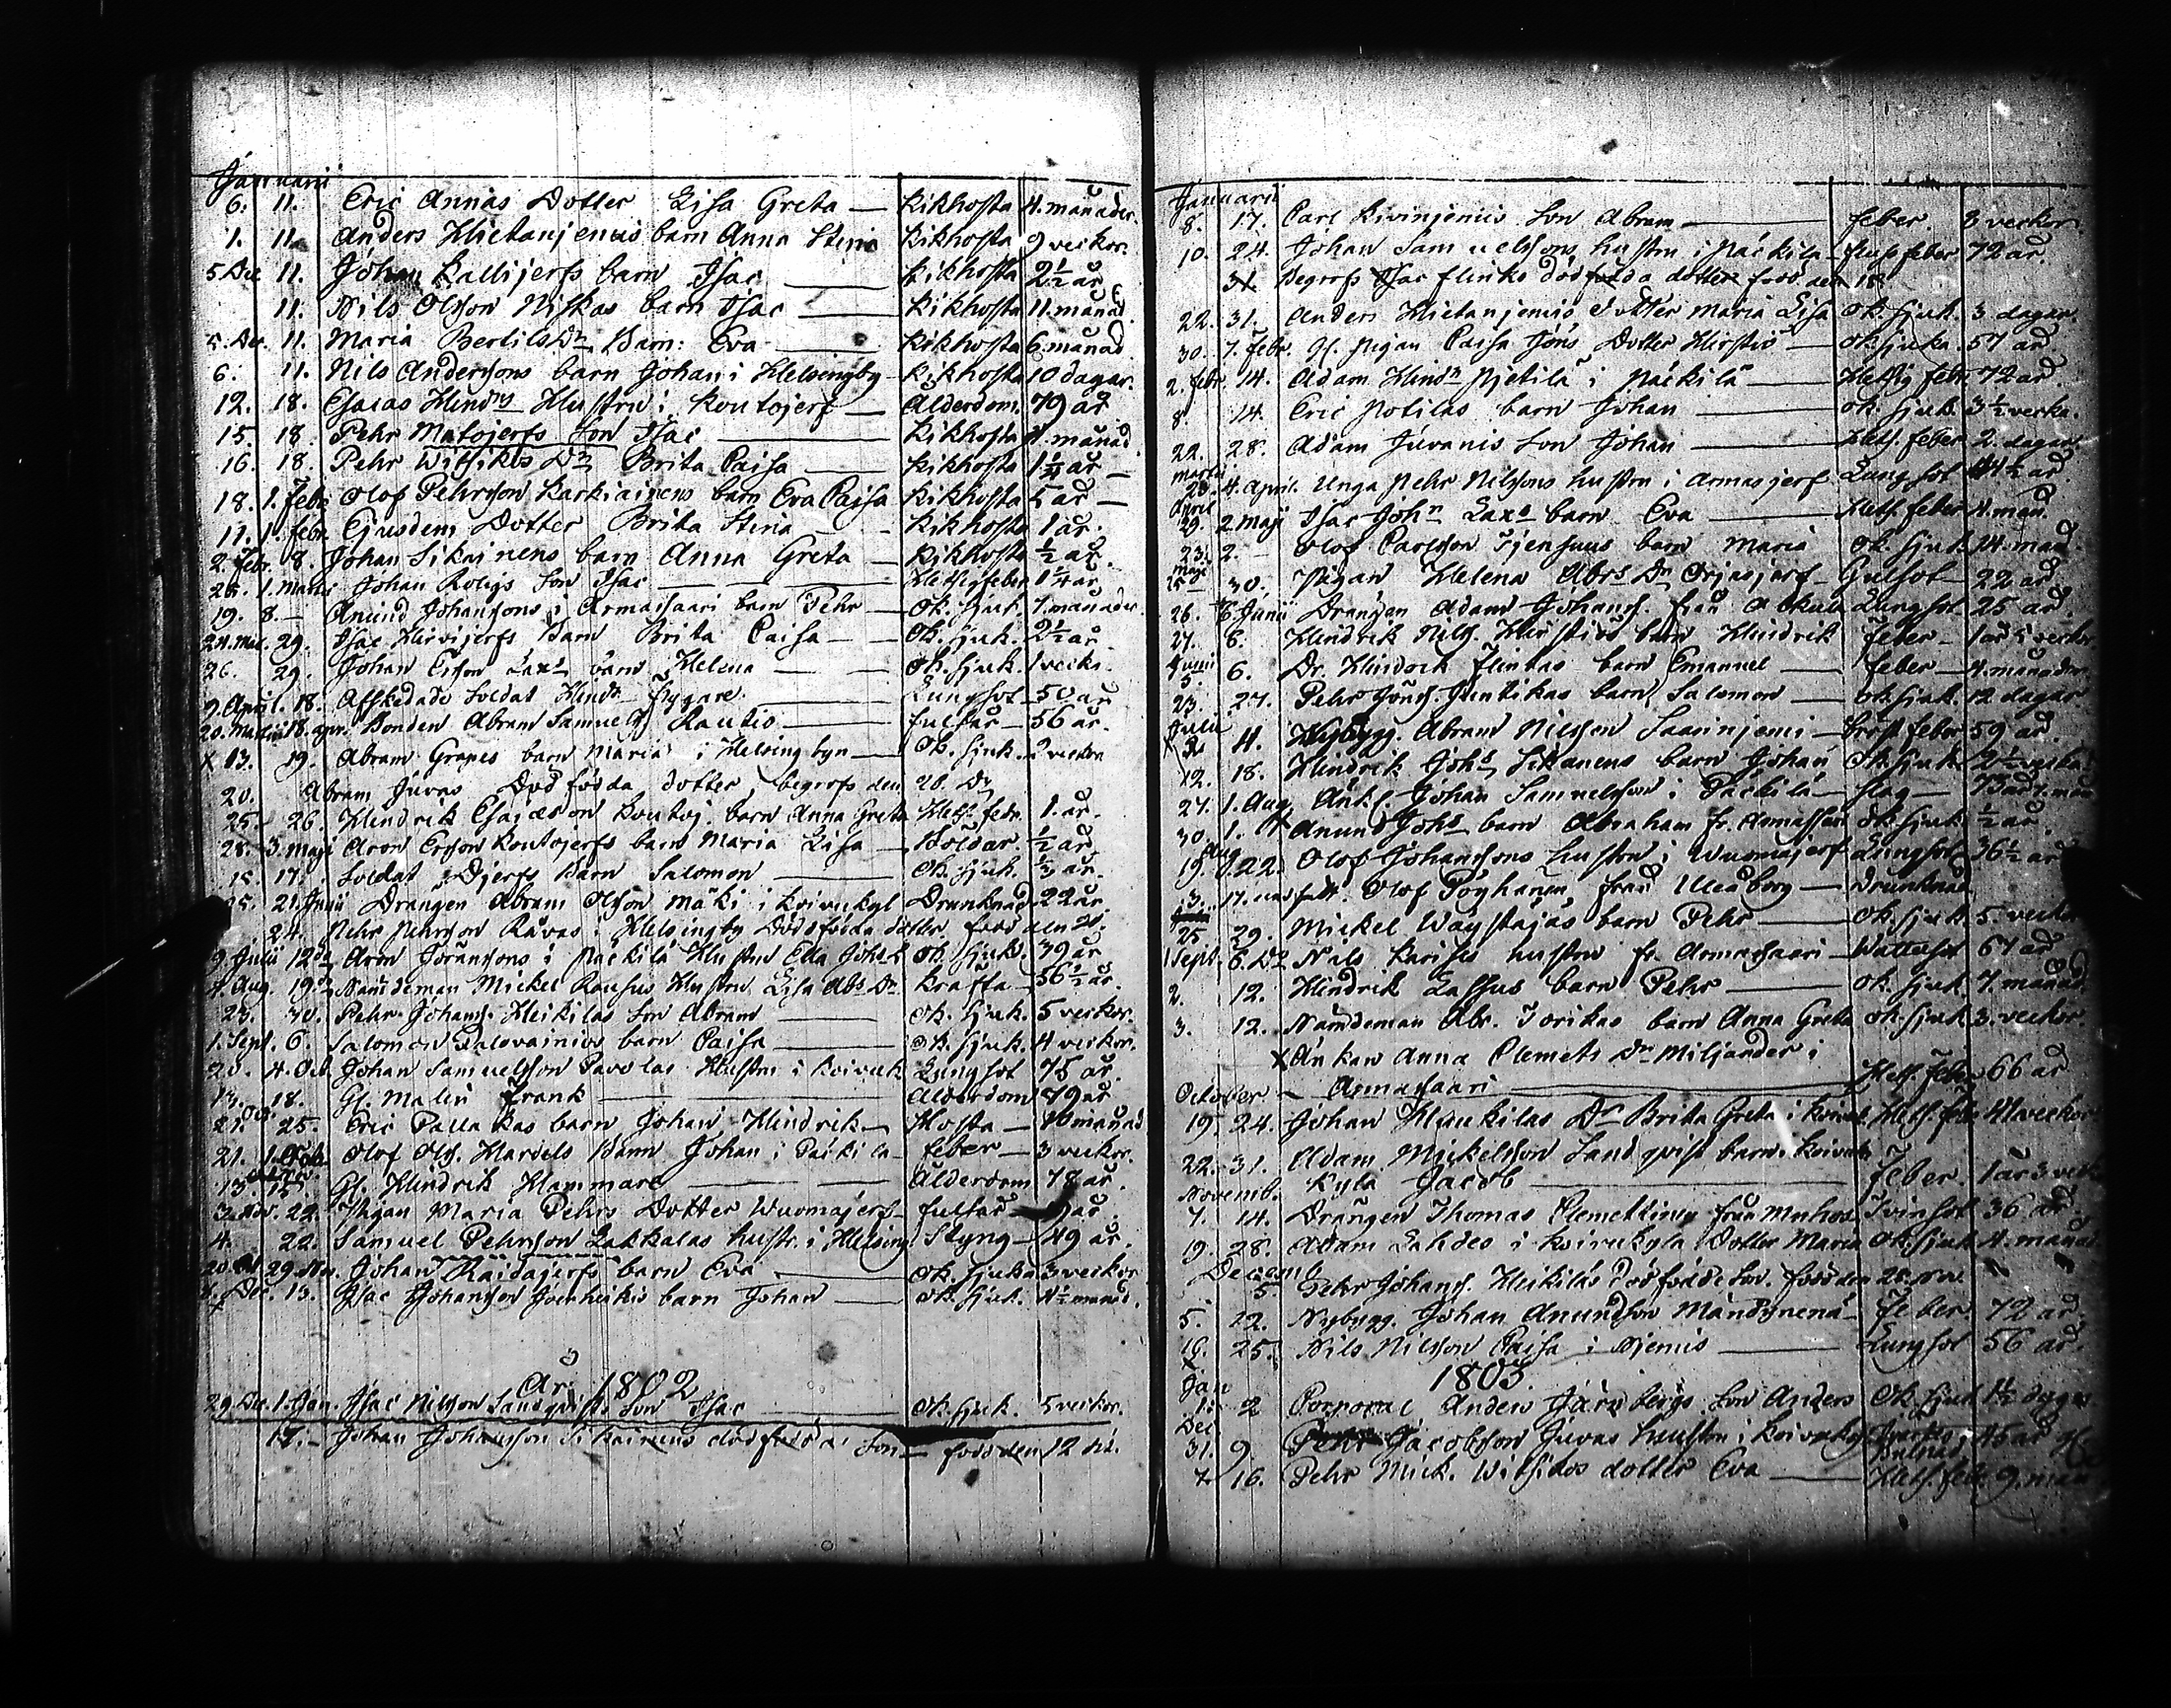 Januari
6. 11. Eric Annas Dotter Lisa Greta — Kikhosta 4. månader.
1. 11. Anders Hietanjemis barn Anna Stina Kikhosta 9 veckor.
5 Dec 11. Johan Kallijerfs barn Isac — Kikhosta 2½ år
11. Nils Olsson Niskas barn Isac — Kikhosta 11. månad
5. Dec. 11. Maria Bertils Dr. Barn: Eva — Kikhosta 6. månad
6. 11. Nils Anderssons barn Johan i Helsingby Kikhosta 10 dagar.
12. 18. Esaias Hindrs Hustru i Koutojerf — Ålderdom. 79 år
15. 18. Pehr Matojerfs Son Isac — Kikhosta 4. månad
16. 18. Pehr Witsikos Dr Brita Caisa — Kikhosta 1 år —
18. 1. Febr Olof Pehrsson Karkiainens barn Eva Caisa Kikhosta 5 år —
11. 1. febr. Ejusdem Dotter Brita Stina — Kikhosta 1 år.
2. Febr. 8. Johan Sikainens barn Anna Greta — Kikhosta ½ år.
1. Martii Johan Rovas Son Isac — Hetsig feber 1¼ år
19. 8. — Anund Johanssons i Armassaari barn Pehr — Ok. sjuk. 7. månader
24. Mar. 29. Isac Hirvijerfs Barn Brita Caisa — Ok. sjuk. 2½ år
26. 29. Johan Ersson Laxs barn Helena — Ok. sjuk. 1 vecka.
9. April. 18. Afskedade Soldat Hindr. Flygare — Lungsot — 50 år
20. Martii 18. apr. Bonden Abram Samuels. Rautio — fulslår — 56 år.
x 13. 19. Abram Grapes barn Maria i Helsingbyn — Ok. sjuk. 2 veckor
20. Abram Juvas Dödfödda dotter, begrofs den 26. D.
25. 26. Hindrik Esaiæson Koutoj. barn Anna Greta Hets. febr. 1. år.
28. 3. Maji Aron Ersson Koutojerfs barn Maria Lisa — Bölder. ½ år
15. 17. Soldat Djerfs Barn Salomon — Ok. sjuk. ½ år.
15. 21. Junii Drängen Abram Olsson Mäki i Koivukyl Drunknad 22 år.
24. Pehr Pehrsson Råvas i Helsingby Dödfödda dotter, född den 21.
9. Julii 12. Aron Jöranssons i Päckilä Hustru Ella Johs Ok. sjukd. 39 år
7. Aug. 19. Nämdeman Mickel Rousus Hustru Lisa Abs Dr. Kräfta — 56½ år.
23. 30. Pehr Johans. Heikilas Son Abram — Ok. sjuk. 5 veckor.
1. Sept. 6. Salomon Palovainios barn Caisa — Ok. sjuk. 4 veckor.
20. 4. Oct. Johan Samuelsson Pavolas Hustru i Koivuk Lungsot 75 år.
13. 18. Gl. Malin Frank — Ålderdom 79 år
21. Oct. 25. Eric Pallakas barn Johan Hindrik — Hosta — 10 månad
21. Olof Ols. Martels Barn Johan i Päckila — feber — 3 veckor.
13. 15. Gl. Hindrik Hammare — Ålderdom 78 år.
3. Nov. 22. Pigan Maria Pehrs Dotter Wuomajerf — fulslår — år
4. 22. Samuel Pehrsson Lakkalas hustr. i Helsing. Styng — 49 år.
20. Oct 29. Nov. Johan Raidajerfs barn Eva — Ok. sjuka 3 veckor
8. Dec. 13. Isac Johansson Joenheikis barn Johan — Ok. sjuk. 4½ månad.
År: 1802
29. Dec. 1. Jan. Isac Nilsson Sandqvists Son Isac — Ok. sjuk. 5 veckor.
17. — Johan Johansson Sikainens dödfödda Son — född den 12 hs.
Januarii
8. 17. Carl Kivinjemis Son Abram — feber. 3 veckor
10. 24. Johan Samuelssons hustru i Päckila — flussfeber 72 år.
31. Begrofs Isac Flinks dödfödda dotter född den 18
22. 31. Anders Hietanjemis Dotter Maria Lisa Ok. sjuk. 3 dagar.
30. 7. Febr. Gl. Pigan Caisa Jöns Dotter Kirstiö — Ok. sjuka. 57 år
2. Febr. 14. Adam Hindr. Pjetilä i Päckilä — Hetsig febr. 72 år.
8. 14. Eric Potilas barn Johan — Ok. sjuk. 3½ vecka.
22. 28. Adam Juvanis Son Johan — Hets. feber 2. dagar
Martii 4. April. Unga Pehr Nilssons hustru i Armasjerf Lungsot 44½ år
April 29. 2 Maji Isac Johs Laxs barn Eva — Hets. feber 4. mån.
23. 2. — Olof Carlsson Tjenhuus barn Maria Ok. sjuk 14. mån.
Maji 25 — 30. Pigan Helena Abrs Dr. Orjasjerf — Gulsot — 22 år
26. 6. Junii Drängen Adam Johans. från Alkula Lungsot. 25 år.
27. 6. Hindrik Nils. Kirstiös barn Hindrik feber — 1 år 5 veckor
Junii 5 6. Dr. Hindrik Flinkas barn Emanuel — feber — 4. månader
23. 27. Pehr Jöns. Juntikas barn Salomon — ok. sjuk. 12 dagar
Julii 4. Nybygg. Abram Nilsson Saarinjemi — Bröst feber 59 år.
12. 18. Hindrik Johs Sikanens barn Johan Ok. sjuk 2½ vecka.
27. 1. Aug. Änkl. Johan Samuelsson i Päckilä — slag — 73 år. mån
30. 1. Anund Johs barn Abraham fr. Armassaari Ok. sjuk ½ år
19. Aug. 22. Olof Johanssons hustru i Wuomajerf Lungsot 36½ år
3. 17. Olof Pöyhänen från Uleåborg — Drunknad
25 29. Mickel Wäystäjäs barn Pehr — Ok. sjuk 5. veckor
1 Sept. 6. Nils Karises hustru fr. Armassaari — Wattusot 67 år
2. 12. Hindrik Lassus barn Pehr — Ok. sjuk 7. månad.
3. 12. Nämdeman Abr. Torikas barn Anna Greta Ok. sjuk 3. veckor.
x Änkan Anna Clemets Dr Miljander i
October — Armassaari — Hets. feber 66 år
19. 24. Johan Haukilas Dr Brita Greta i Koivuk. Hets. feb. veckor
22. 31. Adam Mickelsson Sandqvist barn i Koivu
Novemb. kyla Jacob — feber. 1 år 3 veck
7. 14. Drängen Thomas Clemettinen från Muhos Tvinsot 36 år.
19. 28. Adam Lahdes i Koivukyla Dotter Maria Ok. sjuk 4. månad
Decemb. 5. Pehr Johans. Heikiläs dödfödde Son, född den 28. Nov.
5. 12. Nybygg. Johan Anundson Mändynenä — feber. 72 år
19. 25. Nils Nilsson Caisa i Njemis — Lungsot 56 år.
1803.
Jan 1. 2 Corporal Anders Järnbergs Son Anders Ok. sjuk 1½ dygn
Dec. 31. 9 Jacobsson Juvas hustru i Koivuky 45 år
7 16. Pehr Mick. Witsikos dotter Eva — Hets. feb. 9. mån